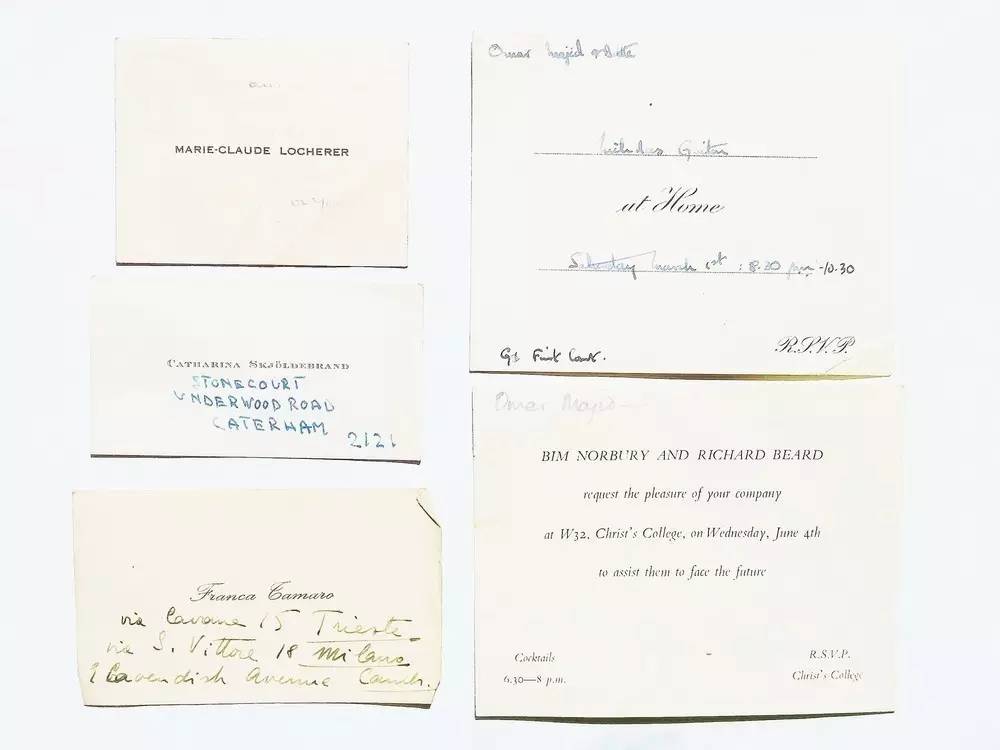 MARIE-CLAUDE LOCHERER
CATHARINA SKJÖLDEBRAND
STONECOURT
UNDERWOOD ROAD
CATERHAM
2121
Franca Tamaro
via Cavana 15 Trieste
via S. Vittore 18 Milano
Cavendish Avenue Camb.
Omar Majid
at Home
Saturday March 1st : 8.30 pm -10.30
R.S.V.P.
First Court.
Omar Majid
BIM NORBURY AND RICHARD BEARD
request the pleasure of your company
at W32, Christ's College, on Wednesday, June 4th
to assist them to face the future
Cocktails
6.30—8 p.m.
R.S.V.P.
Christ's College